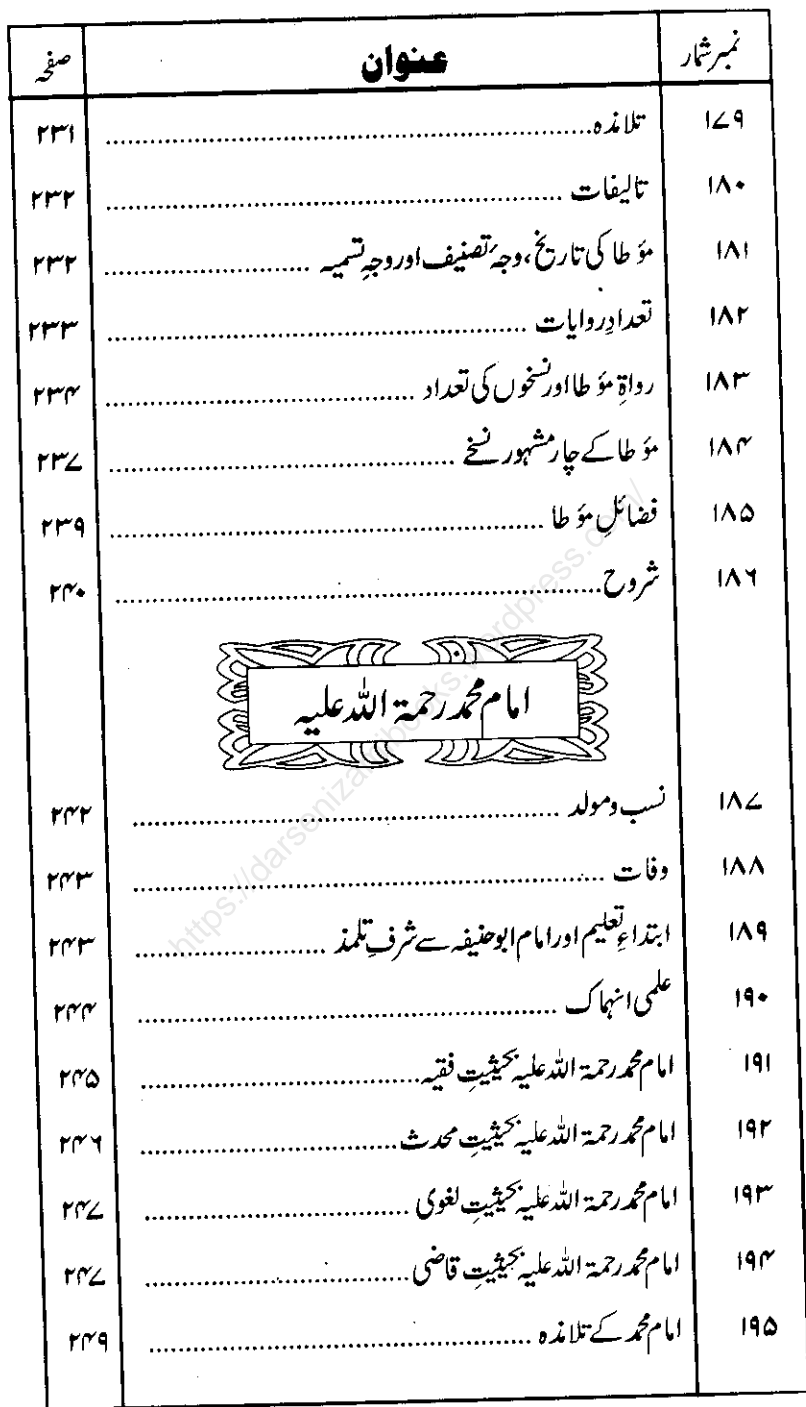 نمبر شمار عنوان صفحہ
۱۷۹ تلامذہ ........ ۲۳۱
۱۸۰ تالیفات ........ ۲۳۲
۱۸۱ مؤطا کی تاریخ، وجہٴ تصنیف اور وجہِ تسمیہ ........ ۲۳۲
۱۸۲ تعدادِ روایات ........ ۲۳۳
۱۸۳ رواۃِ مؤطا اور نسخوں کی تعداد ........ ۲۳۴
۱۸۴ مؤطا کے چار مشہور نسخے ........ ۲۳۷
۱۸۵ فضائلِ مؤطا ........ ۲۳۹
۱۸۶ شروح ........ ۲۴۰
امام محمد رحمۃ اللہ علیہ
۱۸۷ نسب ومولد ........ ۲۴۲
۱۸۸ وفات ........ ۲۴۳
۱۸۹ ابتداءِ تعلیم اور امام ابوحنیفہ سے شرفِ تلمذ ........ ۲۴۳
۱۹۰ علمی انہماک ........ ۲۴۴
۱۹۱ امام محمد رحمۃ اللہ علیہ بحیثیتِ فقیہ ........ ۲۴۵
۱۹۲ امام محمد رحمۃ اللہ علیہ بحیثیتِ محدث ........ ۲۴۶
۱۹۳ امام محمد رحمۃ اللہ علیہ بحیثیتِ لغوی ........ ۲۴۷
۱۹۴ امام محمد رحمۃ اللہ علیہ بحیثیتِ قاضی ........ ۲۴۷
۱۹۵ امام محمد کے تلامذہ ........ ۲۴۹
https://darsenizamibooks.wordpress.com/